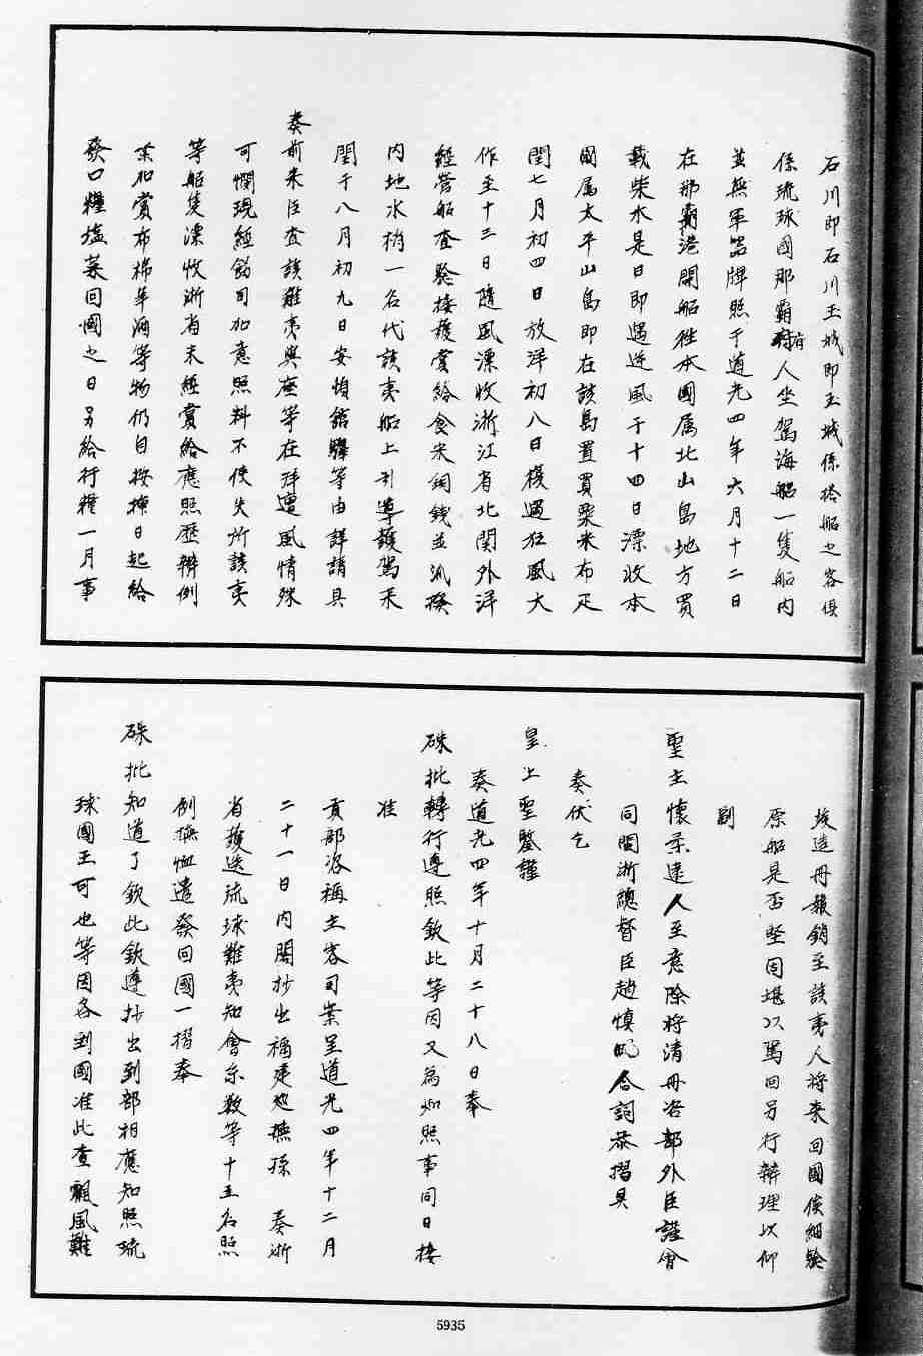 石川即石川玉城即玉城係搭船之客俱
係琉球國那霸府人坐駕海船一隻船内
並無軍器牌照于道光四年六月十二日
在那霸港開船徃本國属北山島地方買
載柴水是日即遇逆風于十四日漂收本
國属太平山島即在該島置買粟米布疋
閏七月初四日放洋初八日復遇狂風大
作至十三日隨風漂收浙江省北関外洋
經營船查驗接護賞給食米銅錢並派撥
内地水梢一名代該夷船上引導護駕来
閩于八月初九日安頓舘驛等由詳請具
奏前来臣查該難夷與座等在洋遭風情殊
可憫現經飭司加意照料不使失所該夷
等船隻漂收浙省未經賞給應照歷辦例
案加賞布棉茶酒等物仍自按插日起給
發口糧塩菜回國之日另給行糧一月事
竣造冊報銷至該夷人將来回國俟細驗
原船是否堅固堪以駕回另行辦理以仰
副
聖主懷柔逺人至意除將清冊咨部外臣謹會
同閩浙總督臣趙慎畛合詞恭摺具
奏伏乞
皇上聖鑒謹
奏道光四年十月二十八日奉
硃批轉行遵照欽此等因又為知照事同日接
准
貢部咨稱主客司案呈道光四年十二月
二十一日内閣抄出福建廵撫孫 奏浙
省護送琉球難夷知會尔敎等十五名照
例撫恤遣發回國一摺奉
硃批知道了欽此欽遵抄出到部相應知照琉
球國王可也等因各到國准此查飄風難
5935